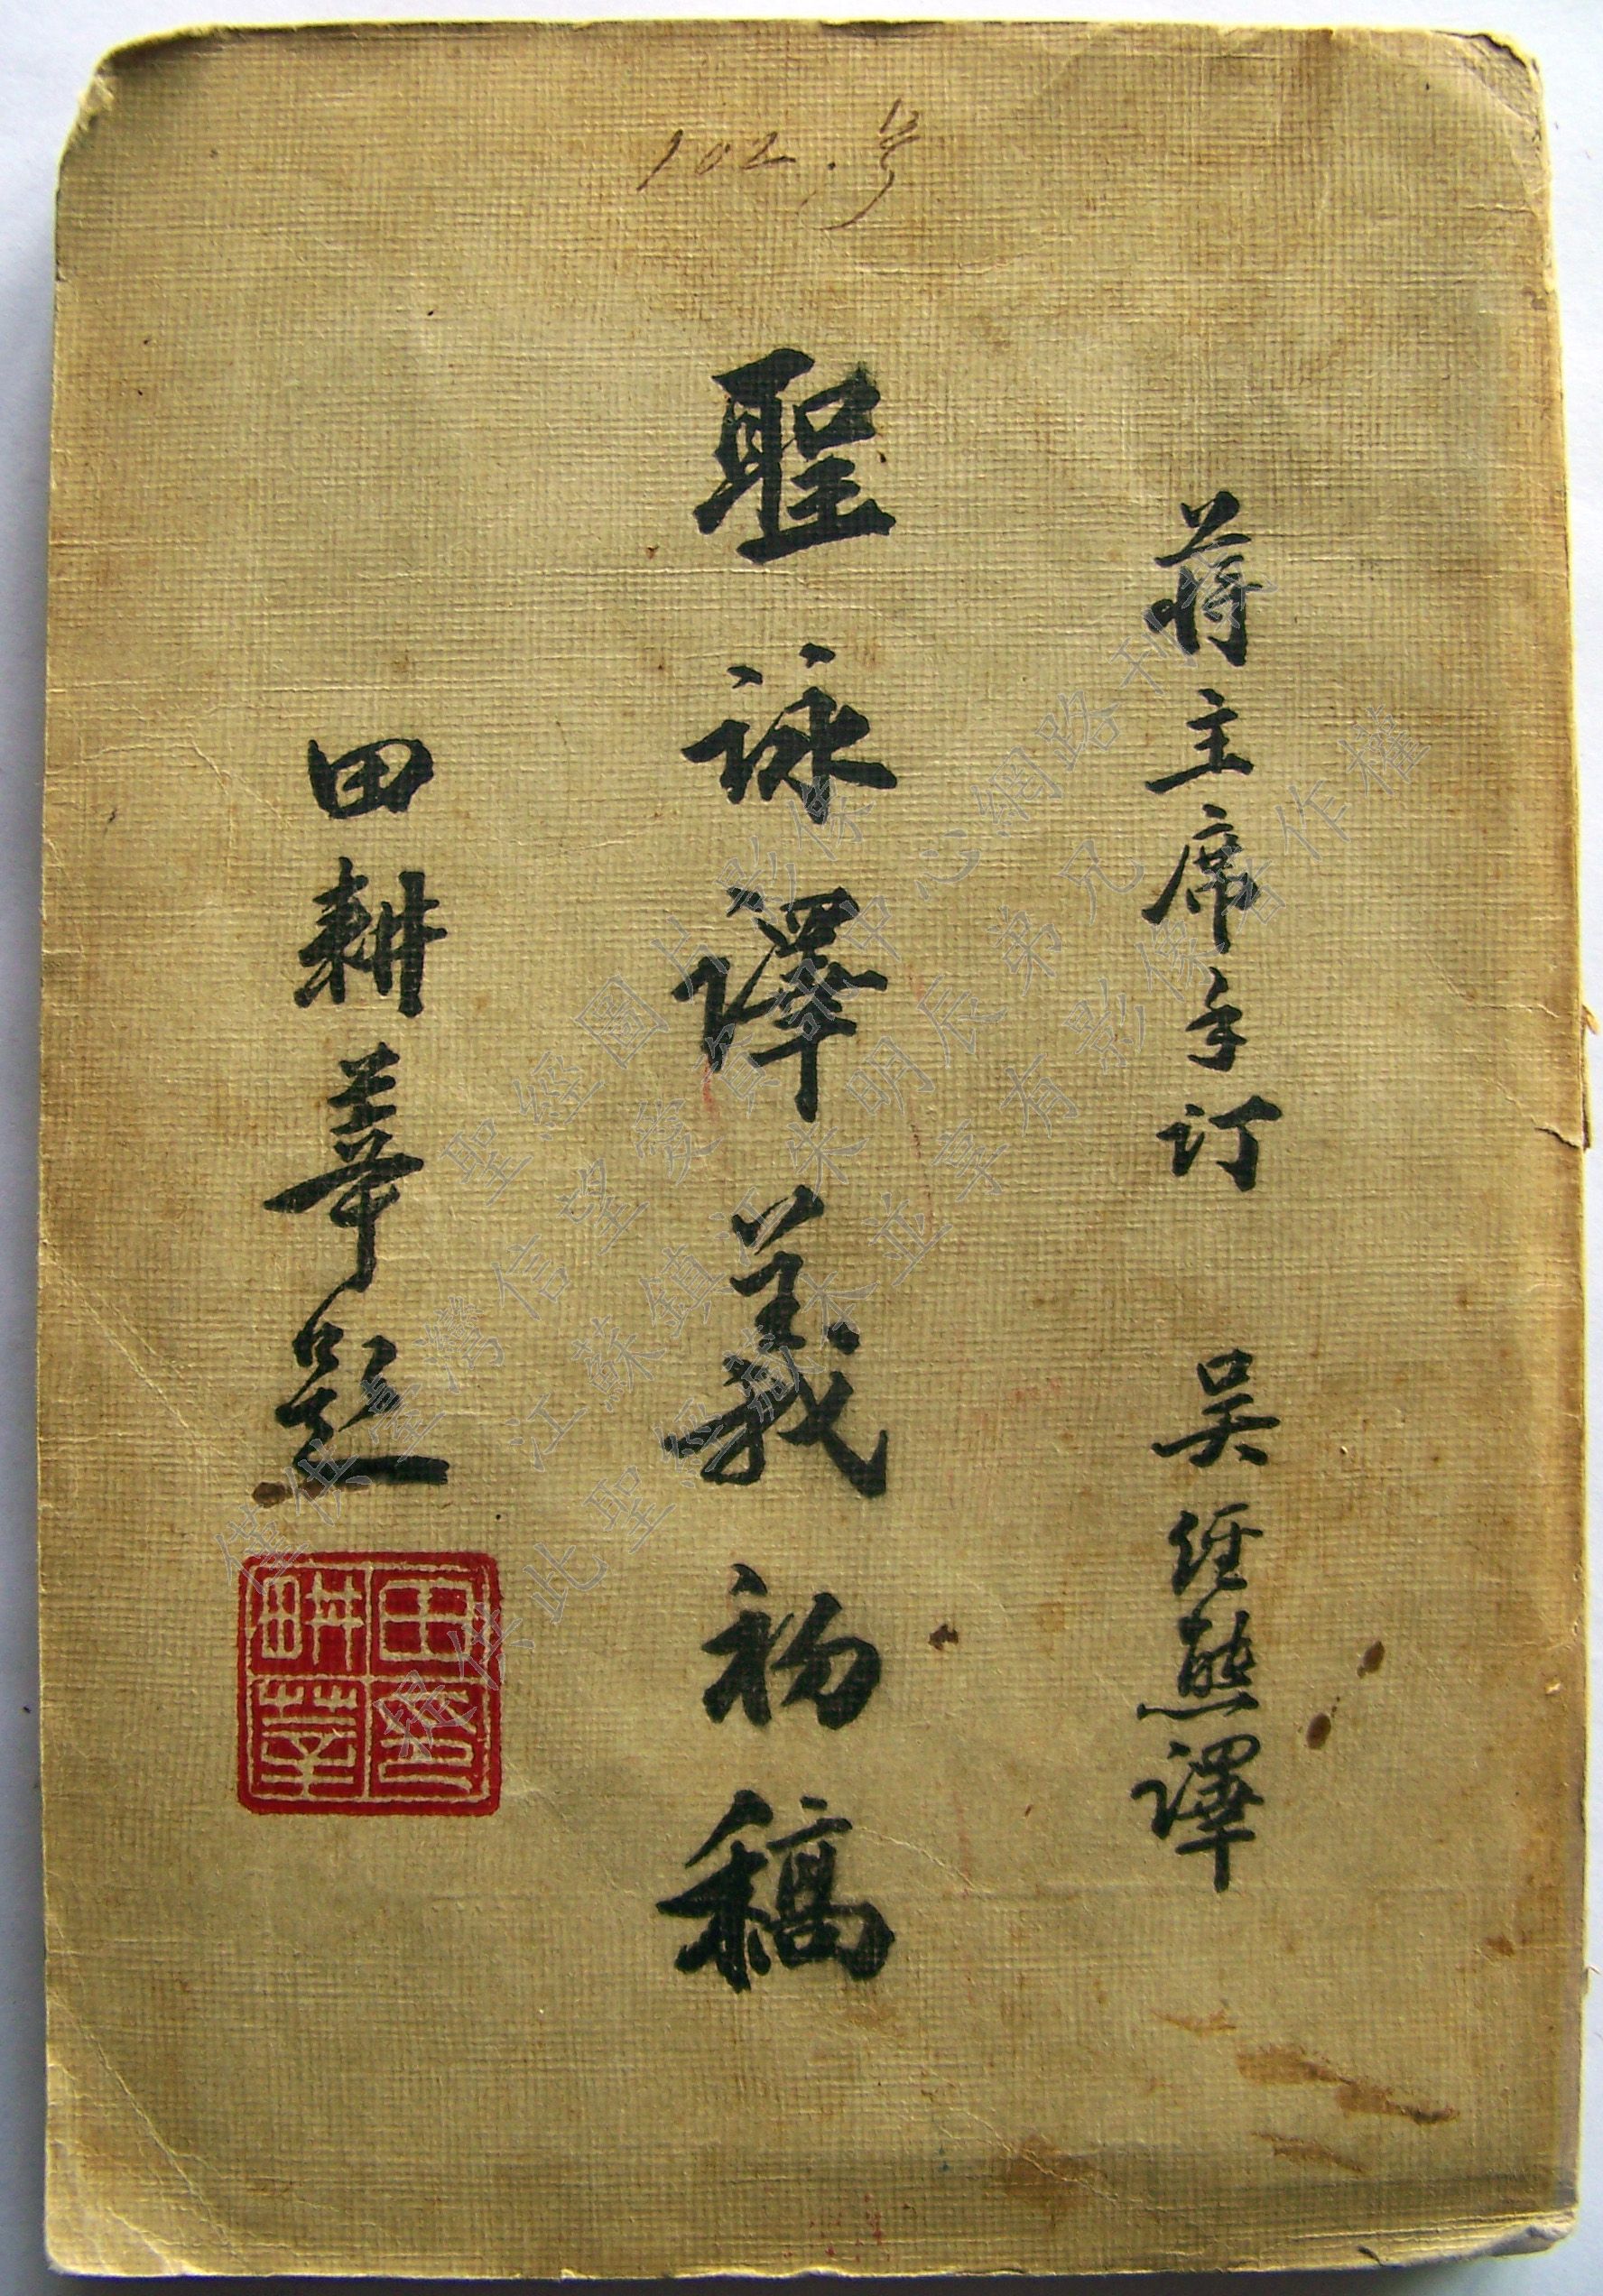 102.号
蔣主席手訂 吳經熊譯
聖詠譯義初稿
田耕莘題
田耕莘印
僅供臺灣信望愛
聖經圖片影像
中心網路刊
江蘇鎮江朱明辰弟兄
提供此聖經
並享有影像著作權